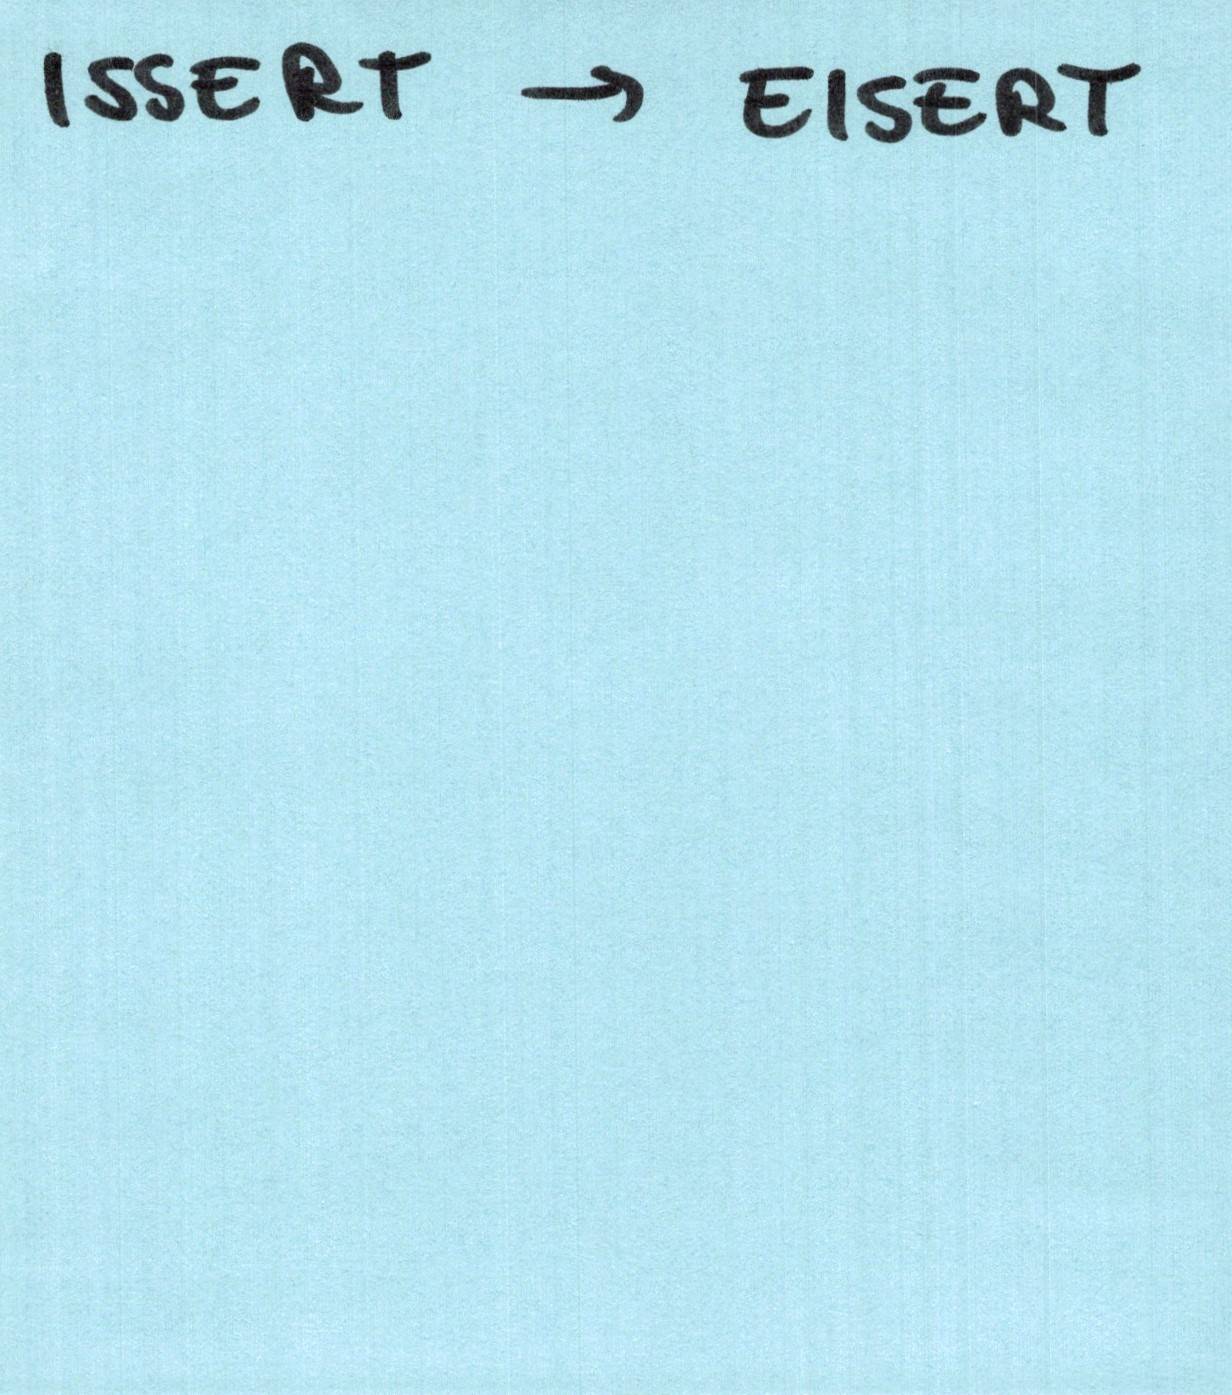 ISSERT → EISERT